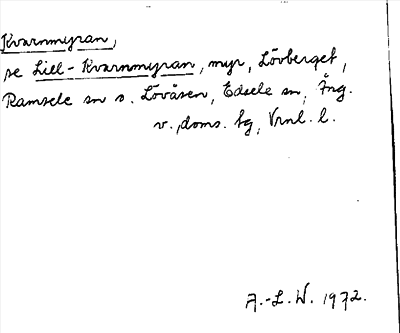 Kvarnmyran,
se Lill-Kvarnmyran, myr, Lövberget,
Ramsele sn o. Lövåsen, Edsele sn, Ång.
v., doms. bg, Vrnl. l.
A.-L. W. 1972.